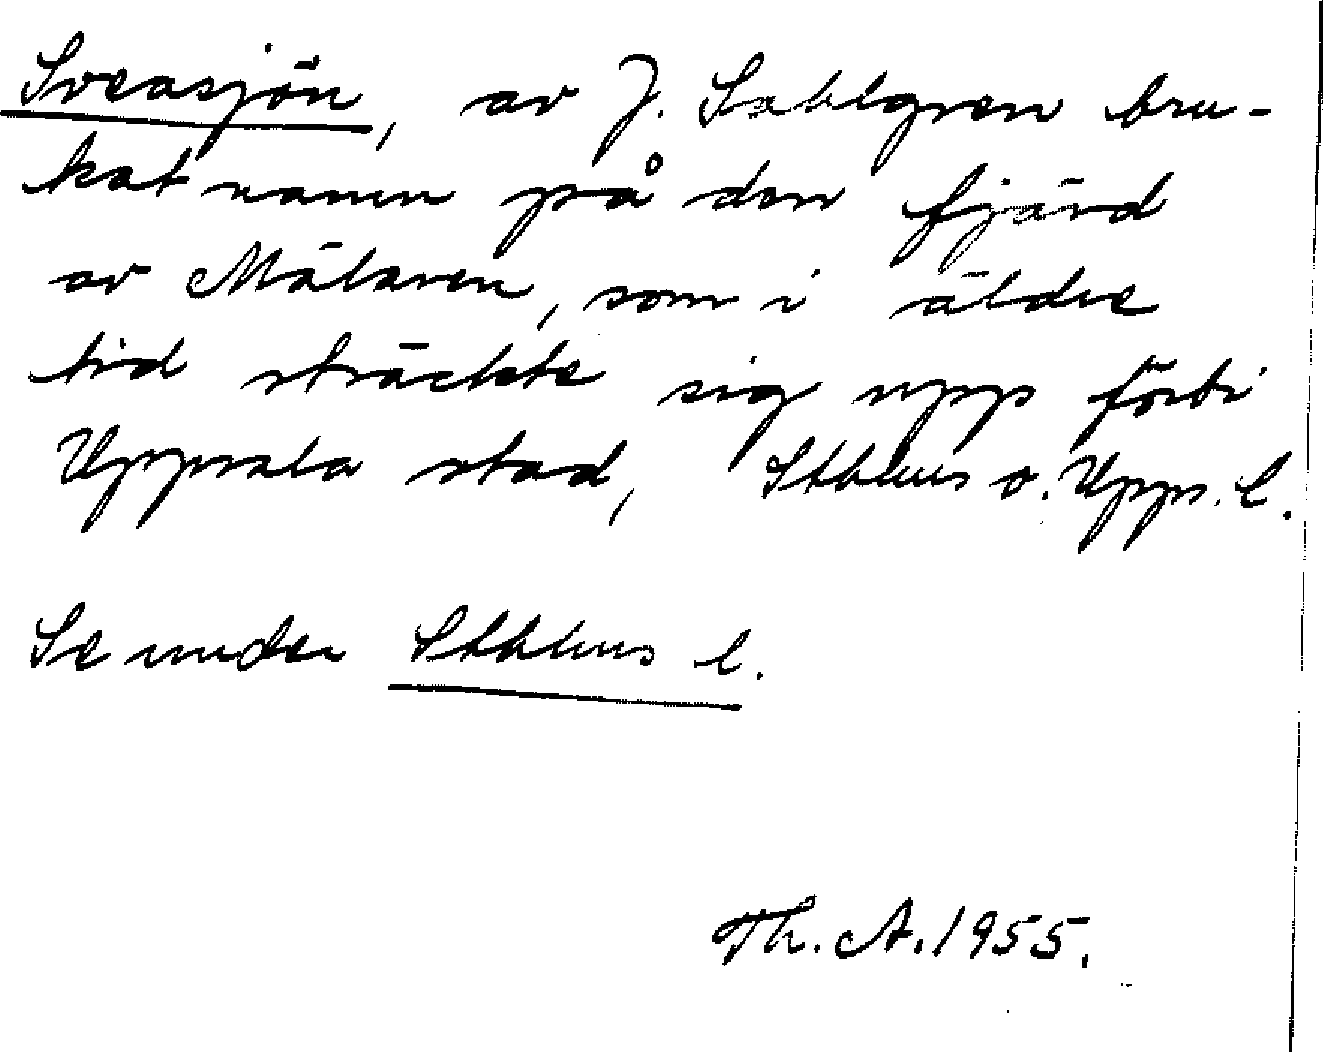 Sveasjön, av J. Sahlgren bru-
kat namn på den fjärd
av Mälaren, som i äldre
tid sträckte sig upp förbi
Uppsala stad, Sthlms o. Upps. l.
Se under Sthlms l.
Th. A. 1955.